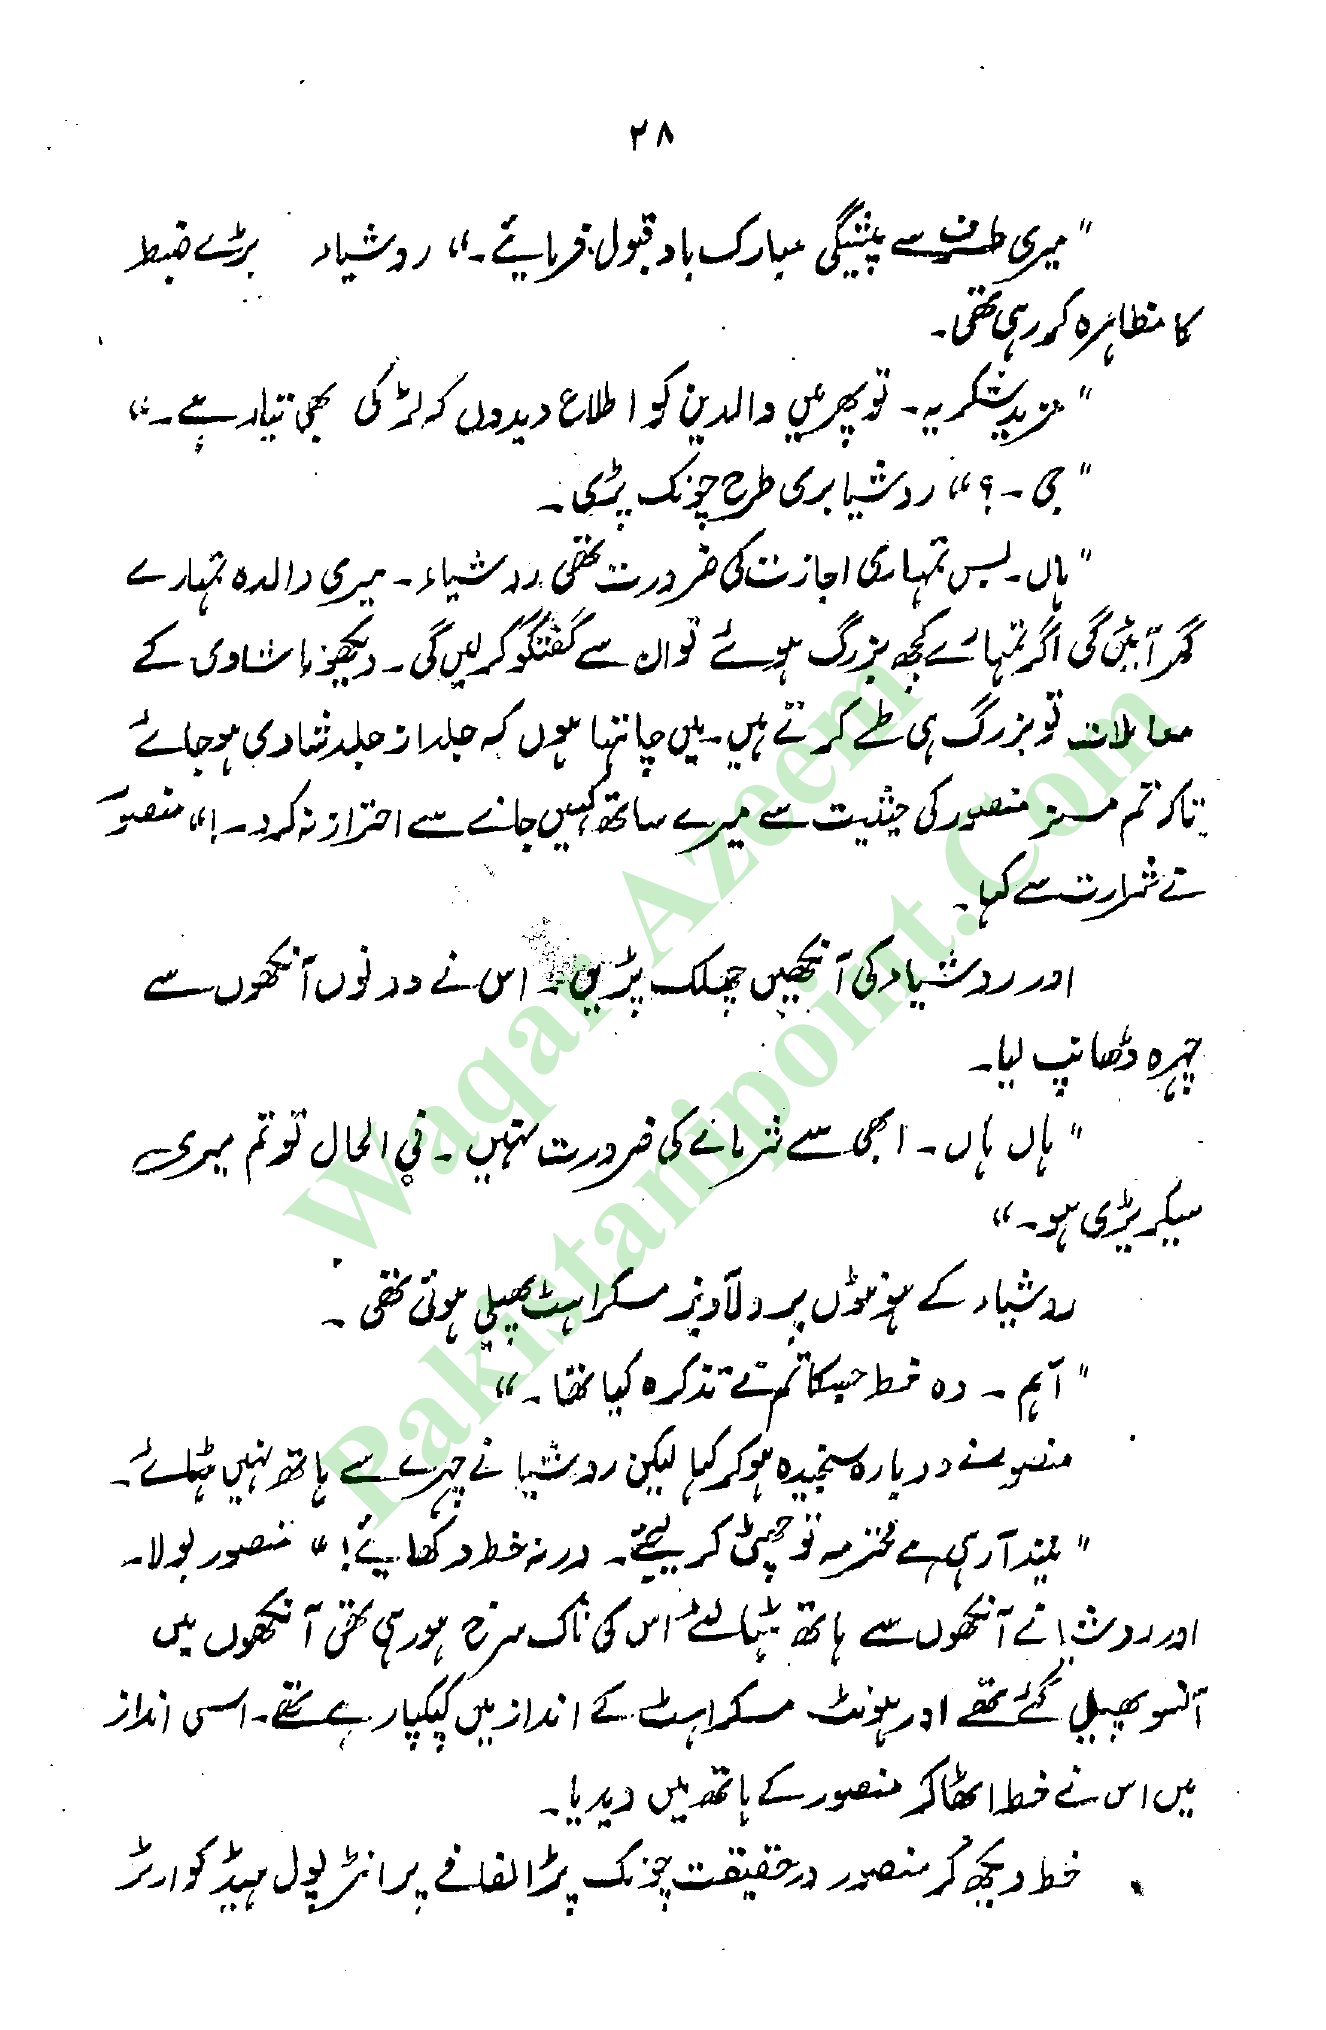 ۲۸
"میری طرف سے پیشگی مبارک باد قبول فرمائیے۔" روشیاء بڑے ضبط
کا مظاہرہ کر رہی تھی۔
"مزید شکریہ۔ تو پھر میں والدین کو اطلاع دیدوں کہ لڑکی بھی تیار ہے۔"
"جی۔؟" روشیا بری طرح چونک پڑی۔
"ہاں۔ بس تمہاری اجازت کی ضرورت تھی روشیاء۔ میری والدہ تمہارے
گھر آئیں گی اگر تمہارے کچھ بزرگ ہوئے تو ان سے گفتگو کریں گی۔ دیکھو نا شادی کے
معاملات تو بزرگ ہی طے کرتے ہیں۔ میں چاہتا ہوں کہ جلد از جلد شادی ہو جائے
تاکہ تم مسز منصور کی حیثیت سے میرے ساتھ کہیں جانے سے احتراز نہ کرو۔!" منصور
نے شرارت سے کہا۔
اور روشیاء کی آنکھیں چھلک پڑیں۔ اس نے دونوں آنکھوں سے
چہرہ ڈھانپ لیا۔
"ہاں ہاں۔ ابھی سے شرمانے کی ضرورت نہیں۔ فی الحال تو تم میری
سیکریٹری ہو۔"
روشیاء کے ہونٹوں پر دلآویز مسکراہٹ پھیلی ہوئی تھی۔
"آہم۔ وہ خط جس کا تم نے تذکرہ کیا تھا۔"
منصور نے دوبارہ سنجیدہ ہو کر کہا لیکن روشیا نے چہرے سے ہاتھ نہیں ہٹائے۔
"نیند آ رہی ہے محترمہ تو چھٹی کر لیجئے۔ ورنہ خط دکھایئے!" منصور بولا۔
اور روشیا نے آنکھوں سے ہاتھ ہٹا لئے اس کی ناک سرخ ہو رہی تھی آنکھوں میں
آنسو پھیل گئے تھے اور ہونٹ مسکراہٹ کے انداز میں کپکپا رہے تھے۔ اسی انداز
میں اس نے خط اٹھا کر منصور کے ہاتھ میں دیدیا۔
خط دیکھ کر منصور درحقیقت چونک پڑا لفافے پر انٹرپول ہیڈ کوارٹر
Waqar Azeem
Pakistanipoint.Com